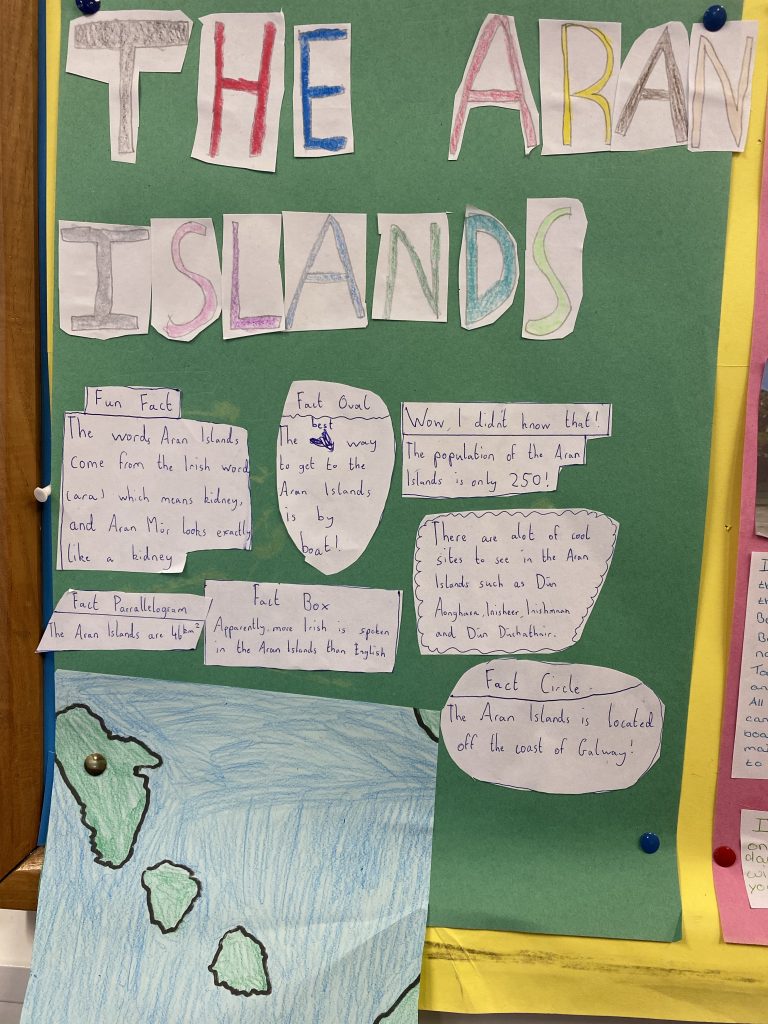 THE ARAN
ISLANDS
Fun Fact
The words Aran Islands
come from the Irish word
(ara) which means kidney,
and Aran Mór looks exactly
like a kidney
Fact Oval
best
The way
to get to the
Aran Islands
is by
boat!
Wow, I didn't know that!
The population of the Aran
Islands is only 250!
There are alot of cool
sites to see in the Aran
Islands such as Dún
Aonghara, Inisheer, Inishmaan
and Dún Dúchathair.
Fact Parrallelogram
The Aran Islands are 46km²
Fact Box
Apparently more Irish is spoken
in the Aran Islands than English
Fact Circle
The Aran Islands is located
off the coast of Galway!